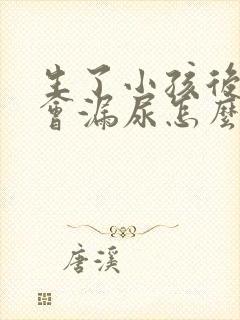 生了小孩後
會漏尿怎麼
唐溪